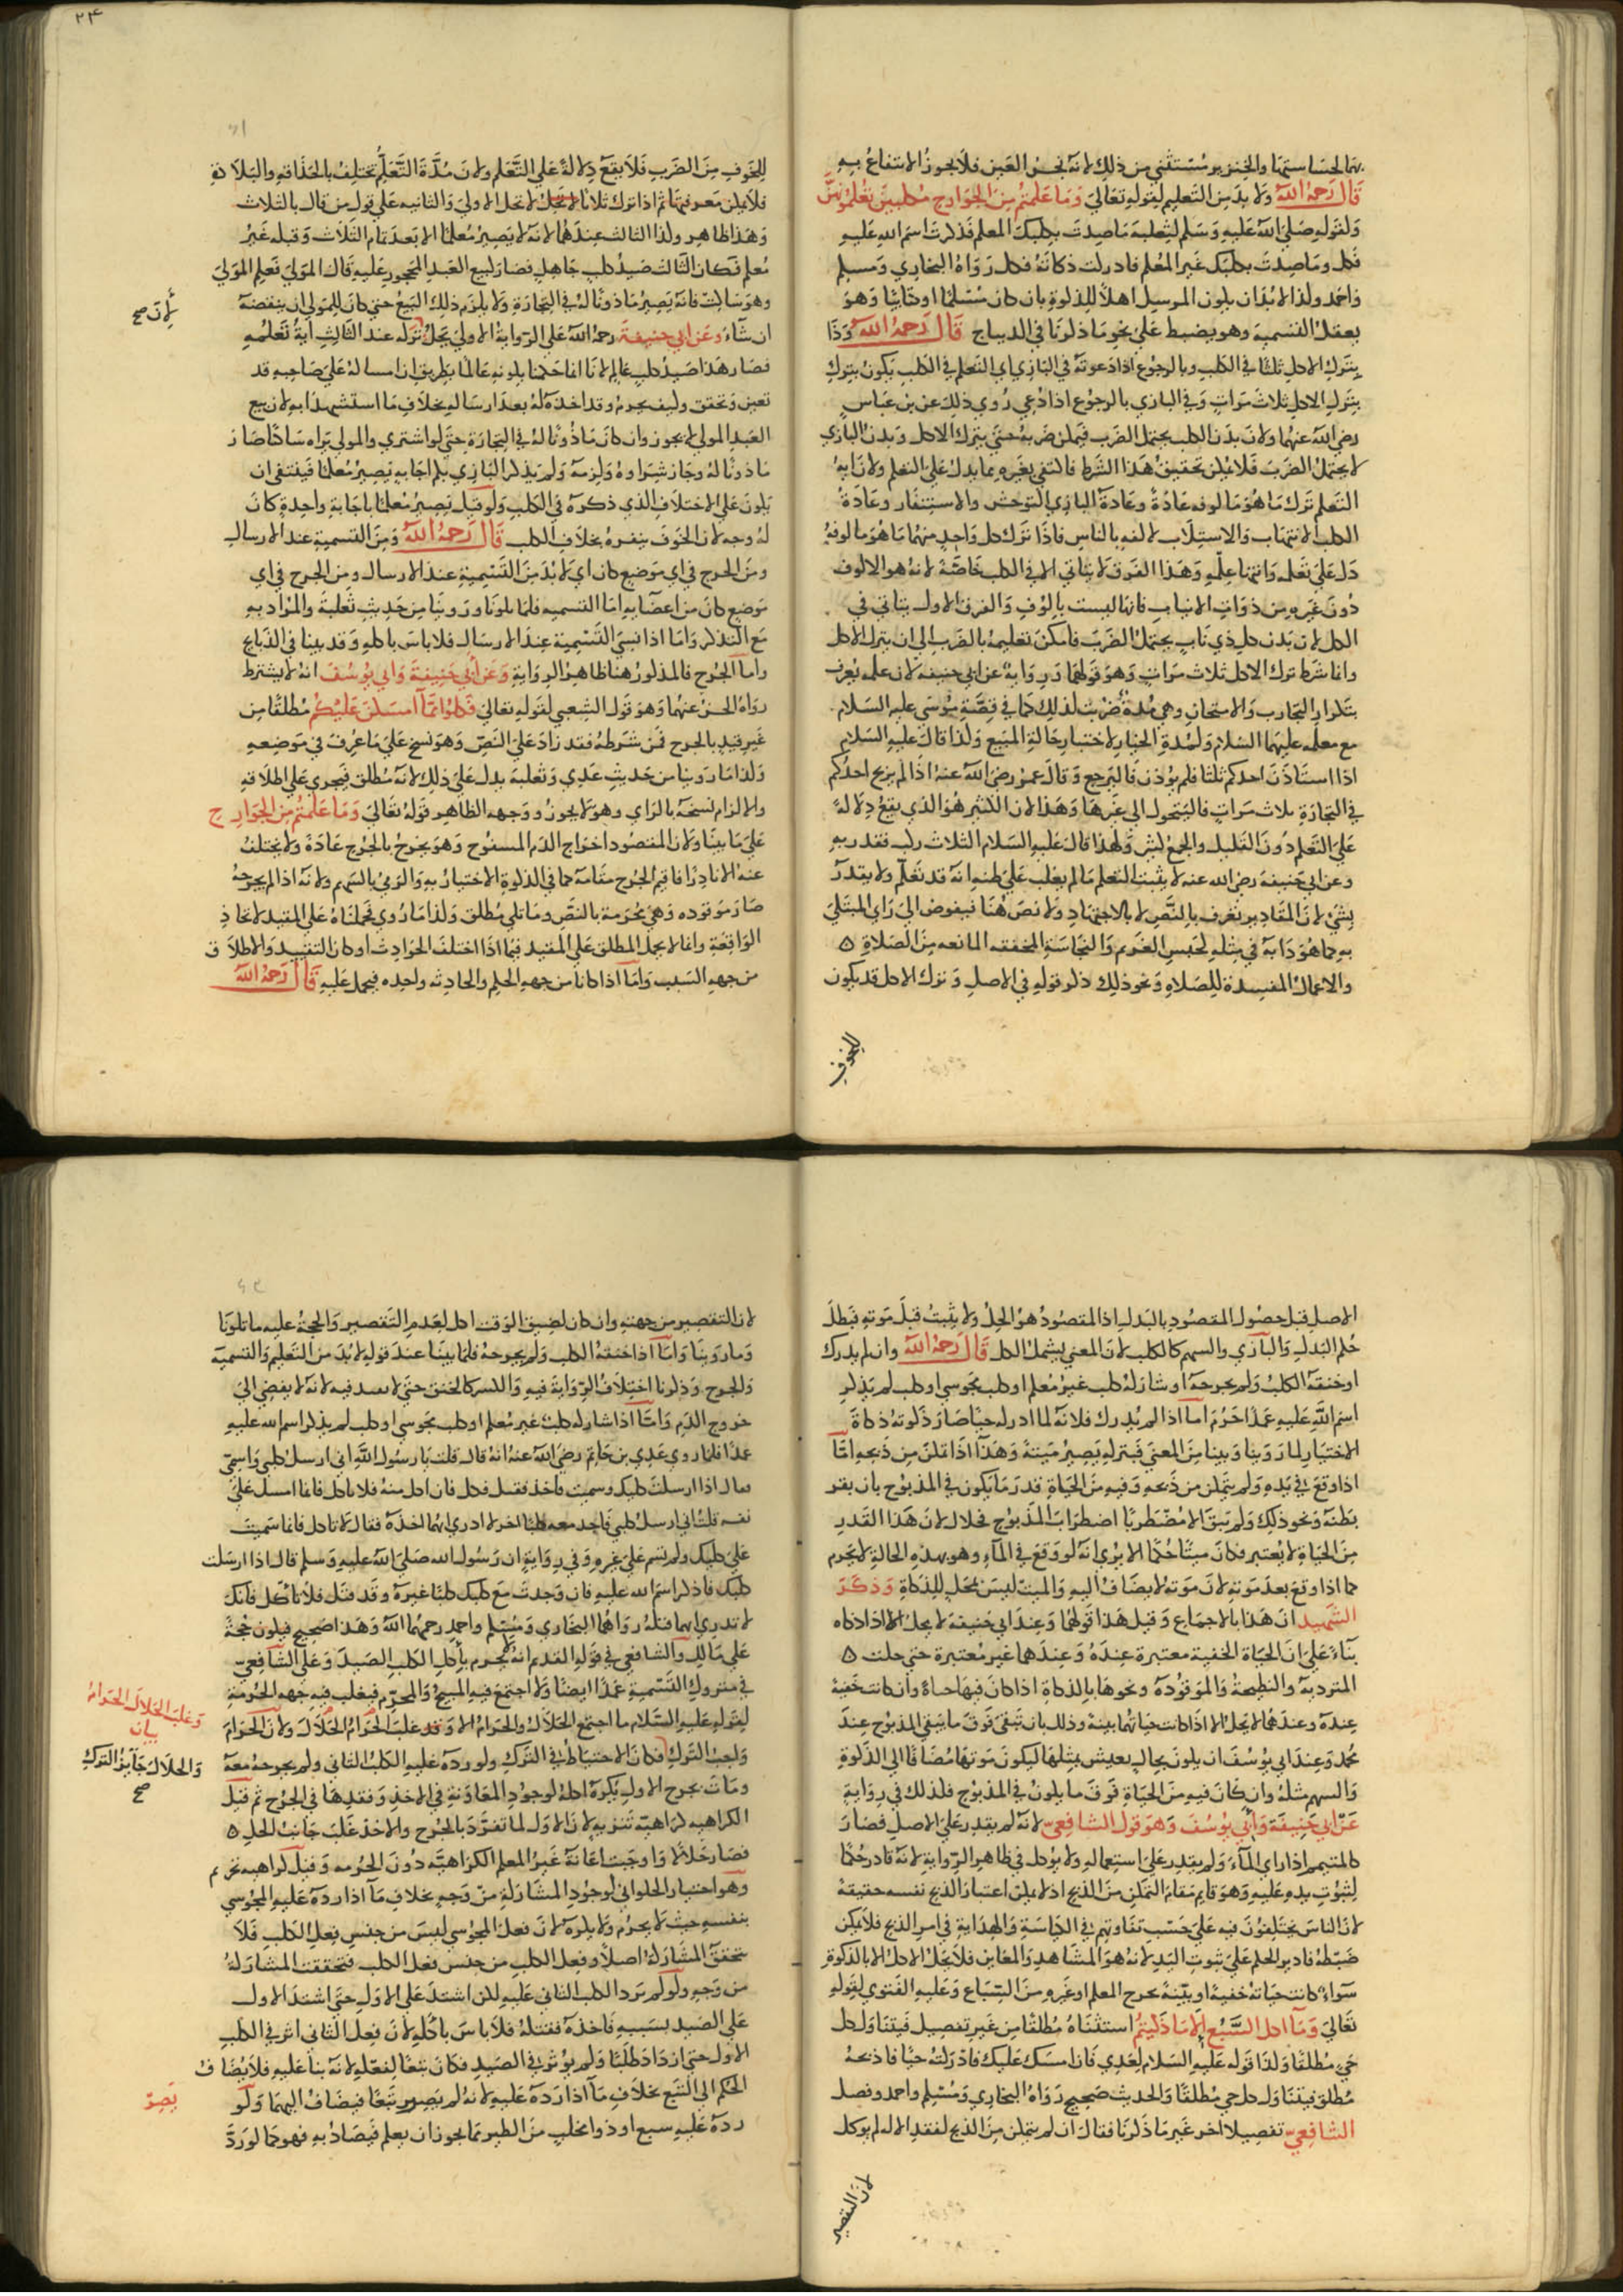 بهما لخساستهما والخنزير مستثنى من ذلك لانه نجس العين فلا يجوز الانتفاع به
قال رحمه الله ولا بد من التعليم لقوله تعالى وما علمتم من الجوارح مكلبين تعلمونهن
ولقوله صلى الله عليه وسلم لثعلبة ما صدت بكلبك المعلم فذكرت اسم الله عليه
فكل وما صدت بكلبك غير المعلم فادركت ذكاته فكل رواه البخاري ومسلم
واحمد ولذا لا بد ان يكون المرسل اهلا للذكوة بان كان مسلما او كتابيا وهو
يعقل التسمية وهو يضبط على نحو ما ذكرنا في الذبايح قال رحمه الله وذا
بترك الاكل ثلثا في الكلب وبالرجوع اذا دعوته في البازي اي التعلم في الكلب يكون بترك
بترك الاكل ثلاث مرات وفي البازي بالرجوع اذا دعي روي ذلك عن بن عباس
رضي الله عنهما ولان بدن الكلب يحتمل الضرب فيمكن ضربه حتى يترك الاكل وبدن البازي
لا يحتمل الضرب فلا يمكن تحقيق هذا الشرط فاكتفي بغيره مما يدل على التعلم ولان اية
التعلم ترك ما هو مالوفه عادة وعادة البازي التوحش والاستنفار وعادة
الكلب الانتهاب والاستلاب لالفه بالناس فاذا ترك كل واحد منهما ما هو مالوفه
دل على تعلمه وانتها علمه وهذا الفرق لا يتاتى الا في الكلب خاصة لانه هو الالوف
دون غيره من ذوات الانياب فانها ليست بالوف والفرق الاول يتاتى في
الكل لان بدن كل ذي ناب يحتمل الضرب فامكن تعليمه بالضرب الى ان يترك الاكل
وانما شرط ترك الاكل ثلاث مرات وهو قولهما ورواية عن ابي حنيفة لان علمه يعرف
بتكرار التجارب والامتحان وهي مدة ضربت لذلك كما في قصة موسى عليه السلام
مع معلمه عليهما السلام ولمدة الخيار لاختبار حالة المبيع ولذا قال عليه السلام
اذا استاذن احدكم ثلثا فلم يؤذن فاليرجع وقال عمر رضي الله عنه اذا لم يربح احدكم
في التجارة ثلاث مرات فاليتحول الى غيرها وهذا لان الكثير هو الذي يقع دلالة
على التعلم دون القليل والجمع كثير ولهذا قال عليه السلام الثلاث ركب فقدر به
وعن ابي حنيفة رضي الله عنه لا يثبت التعلم ما لم يغلب على ظنه انه قد تعلم ولا يقدر
بشي لان المقادير تعرف بالنص لا بالاجتهاد ولا نص هنا فيفوض الى راي المبتلى
به كما هو دابه في مثله كحبس الغريم والنجاسة المخففة المانعة من الصلاة
والاعمال المفسدة للصلاة ونحو ذلك ذكر قوله في الاصل وترك الاكل قد يكون
للخوف
٢٤
للخوف من الضرب فلا يقع دلالة على التعلم ولان مدة التعلم تختلف بالحذاقة والبلادة
فلا يمكن معرفتها ثم اذا ترك ثلاثا لا تحل الاولى والثانية على قول من قال بالثلاث
وهذا ظاهر ولذا الثالث عندهما لانه لا يصير معلما الا بعد تمام الثلاث وقبله غير
معلم فكان الثالث صيد كلب جاهل فصار كبيع العبد المحجور عليه قال المولى فعلم المولى
وهو ساكت فانه يصير ماذونا له في التجارة ولا يلزم ذلك البيع حتى كان للمولى ان ينقضه
لان صح
ان شاء وعن ابي حنيفة رحمه الله على الرواية الاولى يحل تركه عند الثالث اية تعلمه
فصار هذا صيد كلب عالم لانا انما حكمنا بكونه عالما بطريق ان امساكه على صاحبه قد
تعين وتحقق وكيف يحرم وقد اخذه له بعد ارساله بخلاف ما استشهدا به لان بيع
العبد المولى لا يجوز وان كان ماذونا له في التجارة حتى لو اشترى والمولى يراه ساكتا صار
ماذونا له وجاز شراوه ولزمه ولم يذكر البازي بكم اجابة يصير معلما فينبغي ان
يكون على الاختلاف الذي ذكره في الكلب ولو قيل يصير معلما باجابة واحدة كان
له وجه لان الخوف ينفره بخلاف الكلب قال رحمه الله ومن التسمية عند الارسال
ومن الجرح في اي موضع كان اي لا بد من التسمية عند الارسال ومن الجرح في اي
موضع كان من اعضايه اما التسمية فلما تلونا وروينا من حديث ثعلبة والمراد به
مع التذكر واما اذا نسي التسمية عند الارسال فلا باس باكله وقد بينا في الذبايح
واما الجرح فالمذكور هنا ظاهر الرواية وعن ابي حنيفة وابي يوسف انه لا يشترط
رواه الحسن عنهما وهو قول الشعبي لقوله تعالى فكلوا مما امسكن عليكم مطلقا من
غير قيد بالجرح فمن شرطه فقد زاد على النص وهو نسخ على ما عرف في موضعه
ولذا ما روينا من حديث عدي وثعلبة يدل على ذلك لانه مطلق فيجري على اطلاقه
والا لزم نسخه بالراي وهو لا يجوز ووجه الظاهر قوله تعالى وما علمتم من الجوارح
على ما بينا ولان المقصود اخراج الدم المسفوح وهو يخرج بالجرح عادة ولا يختلف
عنه الا نادرا فاقيم الجرح مقامه كما في الذكوة الاختيارية والرمي بالسهم ولانه اذا لم يجرحه
صار موقوذه وهي محرمة بالنص وما تلي مطلق ولذا ما روي فحملناه على المقيد لاتحاد
الواقعة وانما لا يحمل المطلق على المقيد فيما اذا اختلف الحوادث او كان التقييد والاطلاق
من جهة السبب واما اذا كانا من جهة الحكم والحادثة واحده فيحمل عليه قال رحمه الله
الاصل قبل حصول المقصود بالبدل اذ المقصود هو الحل ولا يثبت قبل موته فبطل
حكم البدل والبازي والسهم كالكلب لان المعنى يشمل الكل قال رحمه الله وان لم يدرك
او خنقه الكلب ولم يجرحه او شاركه كلب غير معلم او كلب مجوسي او كلب لم يذكر
اسم الله عليه عمدا حرم اما اذا لم يدرك فلانه لما ادركه حيا صار ذكوته ذكاة
الاختيار لما روينا وبينا من المعنى فبتركه يصير ميتة وهذا اذا تمكن من ذبحه اما
اذا وقع في يده ولم يتمكن من ذبحه وفيه من الحياة قدر ما يكون في المذبوح بان بقر
بطنه ونحو ذلك ولم يبق الا مضطربا اضطراب المذبوح فحلال لان هذا القدر
من الحياة لا يعتبر فكان ميتا حكما الا يرى انه لو وقع في الماء وهو بهذه الحالة لا يحرم
كما اذا وقع بعد موته لان موته لا يضاف اليه والميت ليس بمحل للذكاة وذكر
الشهيد ان هذا بالاجماع وقيل هذا قولهما وعند ابي حنيفة لا يحل الا اذا ذكاه
بناء على ان الحياة الخفية معتبرة عنده وعندهما غير معتبرة حتى حلت
المتردية والنطيحة والموقوذة ونحوها بالذكاة اذا كان فيها حياة وان كانت خفية
عنده وعندهما لا يحل الا اذا كانت حياتها بينة وذلك بان تبقى فوق ما يبقى المذبوح عند
محمد وعند ابي يوسف ان يكون بحال يعيش مثلها ليكون موتها مضافا الى الذكوة
والسهم مثله وان كان فيه من الحياة فوق ما يكون في المذبوح فلذلك في رواية
عن ابي حنيفة وابي يوسف وهو قول الشافعي لانه لم يقدر على الاصل فصار
كالمتيمم اذا راى الماء ولم يقدر على استعماله ولا يؤكل في ظاهر الرواية لانه قادر حكما
لثبوت يده عليه وهو قايم مقام التمكن من الذبح اذ لا يمكن اعتبار الذبح نفسه حقيقة
لان الناس يختلفون فيه على حسب تفاوتهم في الكياسة والهداية في امر الذبح فلا يمكن
ضبطه فادير الحكم على ثبوت اليد لانه هو المشاهد والمعاين فلا يحل الاكل الا بالذكوة
سواء كانت حياته خفية او بينة بجرح المعلم او غيره من السباع وعليه الفتوى لقوله
تعالى وما اكل السبع الا ما ذكيتم استثناه مطلقا من غير تفصيل فيتناول كل
حي مطلقا ولذا قوله عليه السلام لعدي فان امسك عليك فادركته حيا فاذبحه
مطلق فيتناول كل حي مطلقا والحديث صحيح رواه البخاري ومسلم واحمد وفصل
الشافعي تفصيلا اخر غير ما ذكرنا فقال ان لم يتمكن من الذبح لفقد الاله لم يوكل
لان التقصير
لان التقصير من جهته وان كان لضيق الوقت اكل لعدم التقصير والحجة عليه ما تلونا
وما روينا واما اذا خنقه الكلب ولم يجرحه فلما بينا عند قوله لا بد من التعليم والتسمية
والجرح وذكرنا اختلاف الرواية فيه والكسر كالخنق حتى لا فيه لانه لا يفضي الى
خروج الدم واما اذا شاركه كلب غير معلم او كلب مجوسي او كلب لم يذكر اسم الله عليه
عمدا فلما روي عدي بن حاتم رضي الله عنه انه قال قلت يا رسول الله اني ارسل كلبي واسمي
فقال اذا ارسلت كلبك وسميت فاخذ فقتل فكل فان اكل منه فلا تاكل فانما امسك على
نفسه قلت اني ارسل كلبي فاجد معه كلبا اخر لا ادري ايهما اخذه فقال لا تاكل فانما سميت
على كلبك ولم تسم على غيره وفي رواية ان رسول الله صلى الله عليه وسلم قال اذا ارسلت
كلبك فاذكر اسم الله عليه فان وجدت مع كلبك كلبا غيره وقد قتل فلا تاكل فانك
لا تدري ايهما قتله رواهما البخاري ومسلم واحمد رحمهما الله وهذا صحيح فيكون حجة
على مالك والشافعي في قوله القديم انه لا يحرم باكل الكلب الصيد وعلى الشافعي
في متروك التسمية عمدا ايضا ولا اجتمع فيه المبيح والمحرم فيغلب فيه جهة الحرمة
وغلب الحلال الحرام
بيان
لقوله عليه السلام ما اجتمع الحلال والحرام الا وقد غلب الحرام الحلال ولان الحرام
واجب الترك فكان الاحتياط في الترك ولو رده عليه الكلب الثاني ولم يجرحه معه
والحلال جايز الترك
صح
ومات بجرح الاول يكره اكله لوجود المعاونة في الاخذ وفقدها في الجرح ثم قيل
الكراهية كراهية تنزيه لان الاول لما تفرد بالجرح والاخذ غلب جانب الحل
فصار حلالا واوجبت اعانة غير المعلم الكراهية دون الحرمه وقيل كراهية تحريم
وهو اختيار الحلواني لوجود المشاركة من وجه بخلاف ما اذا رده عليه المجوسي
بنفسه حيث لا يحرم ولا يكره لان فعل المجوسي ليس من جنس فعل الكلب فلا
تتحقق المشاركة اصلا وفعل الكلب من جنس فعل الكلب فتحققت المشاركة
من وجه ولو لم يرد الكلب الثاني عليه لكن اشتد على الاول حتى اشتد الاول
على الصيد بسببه فاخذه فقتله فلا باس باكله لان فعل الثاني اثر في الكلب
الاول حتى ازداد طلبا ولم يؤثر في الصيد فكان تبعا لفعله لانه بناء عليه فلا يضاف
الحكم الى التبع بخلاف ما اذا رده عليه لانه لم يصير تبعا فيضاف اليهما ولو
يصر
رده عليه سبع او ذو مخلب من الطير مما يجوز ان يعلم فيصاد به فهو كما لو رد